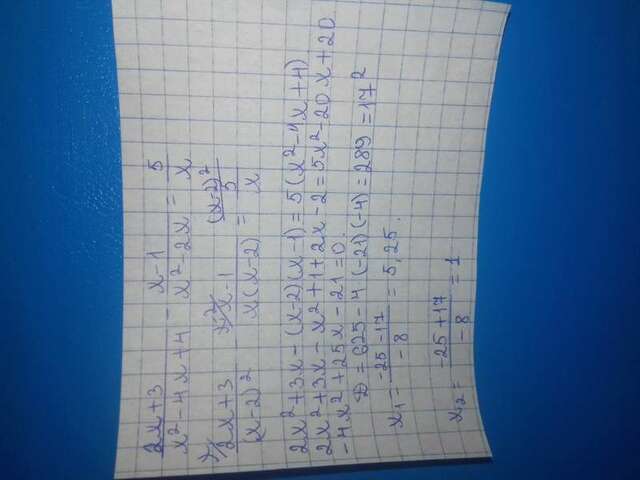 2x+3/x²-4x+4 - x-1/x²-2x = 5/x
x/ 2x+3/(x-2)² x-2/ x-1/x(x-2) = (x-2)²/ 5/x
2x²+3x-(x-2)(x-1)=5(x²-4x+4)
2x²+3x-x²+1+2x-2=5x²-20x+20
-4x²+25x-21=0.
D=625-4(-21)(-4)=289=17²
x₁= -25-17/-8 = 5,25.
x₂= -25+17/-8 = 1